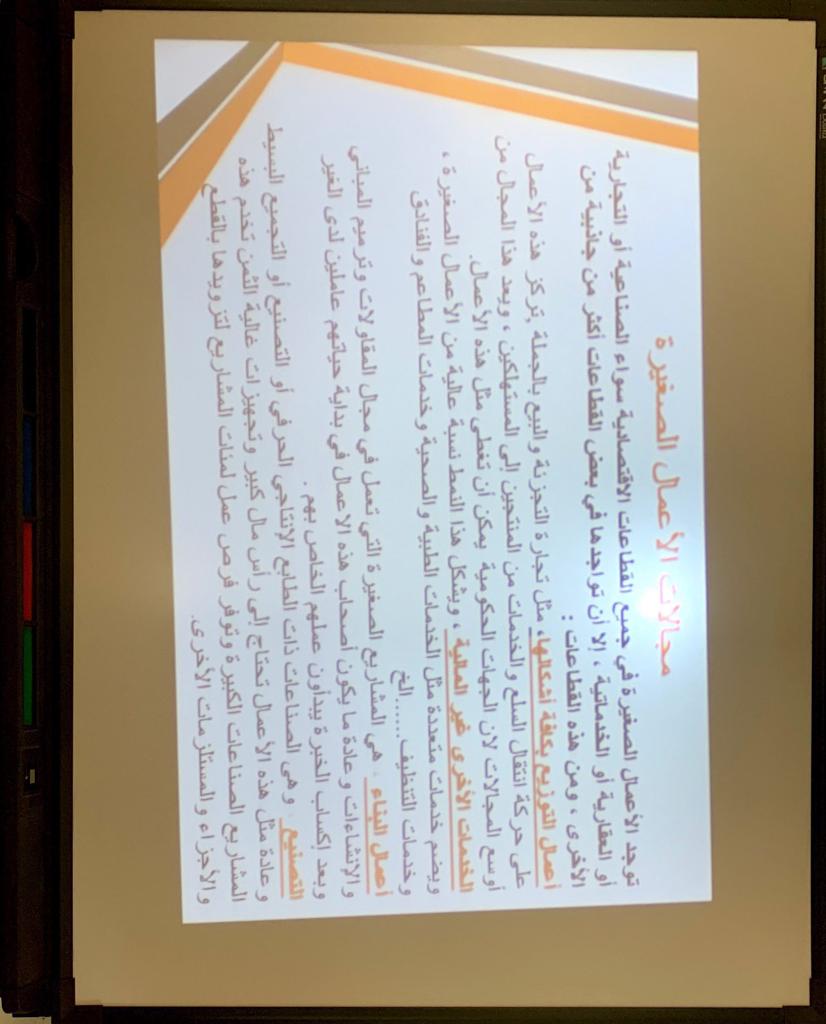 مجالات الأعمال الصغيرة
توجد الأعمال الصغيرة في جميع القطاعات الاقتصادية سواء الصناعية أو التجارية
أو العقارية أو الخدماتية ، إلا أن تواجدها في بعض القطاعات أكثر من جانبية من
الأخرى ، ومن هذه القطاعات :
أعمال التوزيع بكافة أشكالها، مثل تجارة التجزئة والبيع بالجملة ,تركز هذه الأعمال
على حركة انتقال السلع والخدمات من المنتجين إلى المستهلكين ، ويعد هذا المجال من
أوسع المجالات لان الجهات الحكومية يمكن أن تغطي مثل هذه الأعمال.
الخدمات الأخرى غير المالية ، ويشكل هذا النمط نسبة عالية من الأعمال الصغيرة ،
ويضم خدمات متعددة مثل الخدمات الطبية والصحية وخدمات المطاعم والفنادق
وخدمات التنظيف......الخ
أعمال البناء . هي المشاريع الصغيرة التي تعمل في مجال المقاولات وترميم المباني
والإنشاءات وعادة ما يكون أصحاب هذه الاعمال في بداية حياتهم عاملين لدى الغير
وبعد إكساب الخبرة يبدأون عملهم الخاص بهم .
التصنيع . و هى الصناعات ذات الطابع الإنتاجي الحرفي أو التصنيع أو التجميع البسيط
وعادة مثل هذه الأعمال تحتاج إلى رأس مال كبير وتجهيزات غالية الثمن تخدم هذه
المشاريع الصناعات الكبيرة وتوفر فرص عمل لمئات المشاريع لتزويدها بالقطع
والأجزاء والمستلزمات الأخرى.